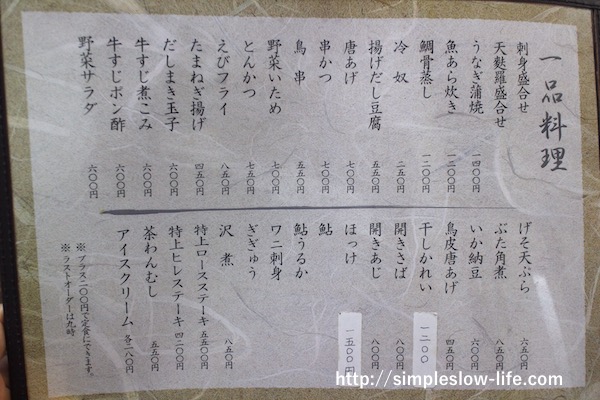 一品料理
刺身盛合せ
天麩羅盛合せ
うなぎ蒲焼 一四〇〇円
魚あら炊き 一二〇〇円
鯛骨蒸し 一二〇〇円
冷奴 二五〇円
揚げだし豆腐 五五〇円
唐あげ 七〇〇円
串かつ 七〇〇円
鳥串 五五〇円
野菜いため 七〇〇円
とんかつ 七五〇円
えびフライ 八五〇円
たまねぎ揚げ 四五〇円
だしまき玉子 六〇〇円
牛すじ煮こみ 六〇〇円
牛すじポン酢 六〇〇円
野菜サラダ 六〇〇円
げそ天ぷら 六五〇円
ぶた角煮 八五〇円
いか納豆 六〇〇円
鳥皮唐あげ 四五〇円
干しかれい 一二〇〇
開きさば 八〇〇円
開きあじ 八〇〇円
ほっけ 一五〇〇円
鮎
鮎うるか
ワニ刺身
ぎぎゅう
沢煮 八五〇円
特上ロースステーキ 五五〇〇円
特上ヒレステーキ 四二〇〇円
茶わんむし 五五〇円
アイスクリーム 各二八〇円
※プラス二〇〇円で定食にできます。
※ラストオーダーは九時
http://simpleslow-life.com